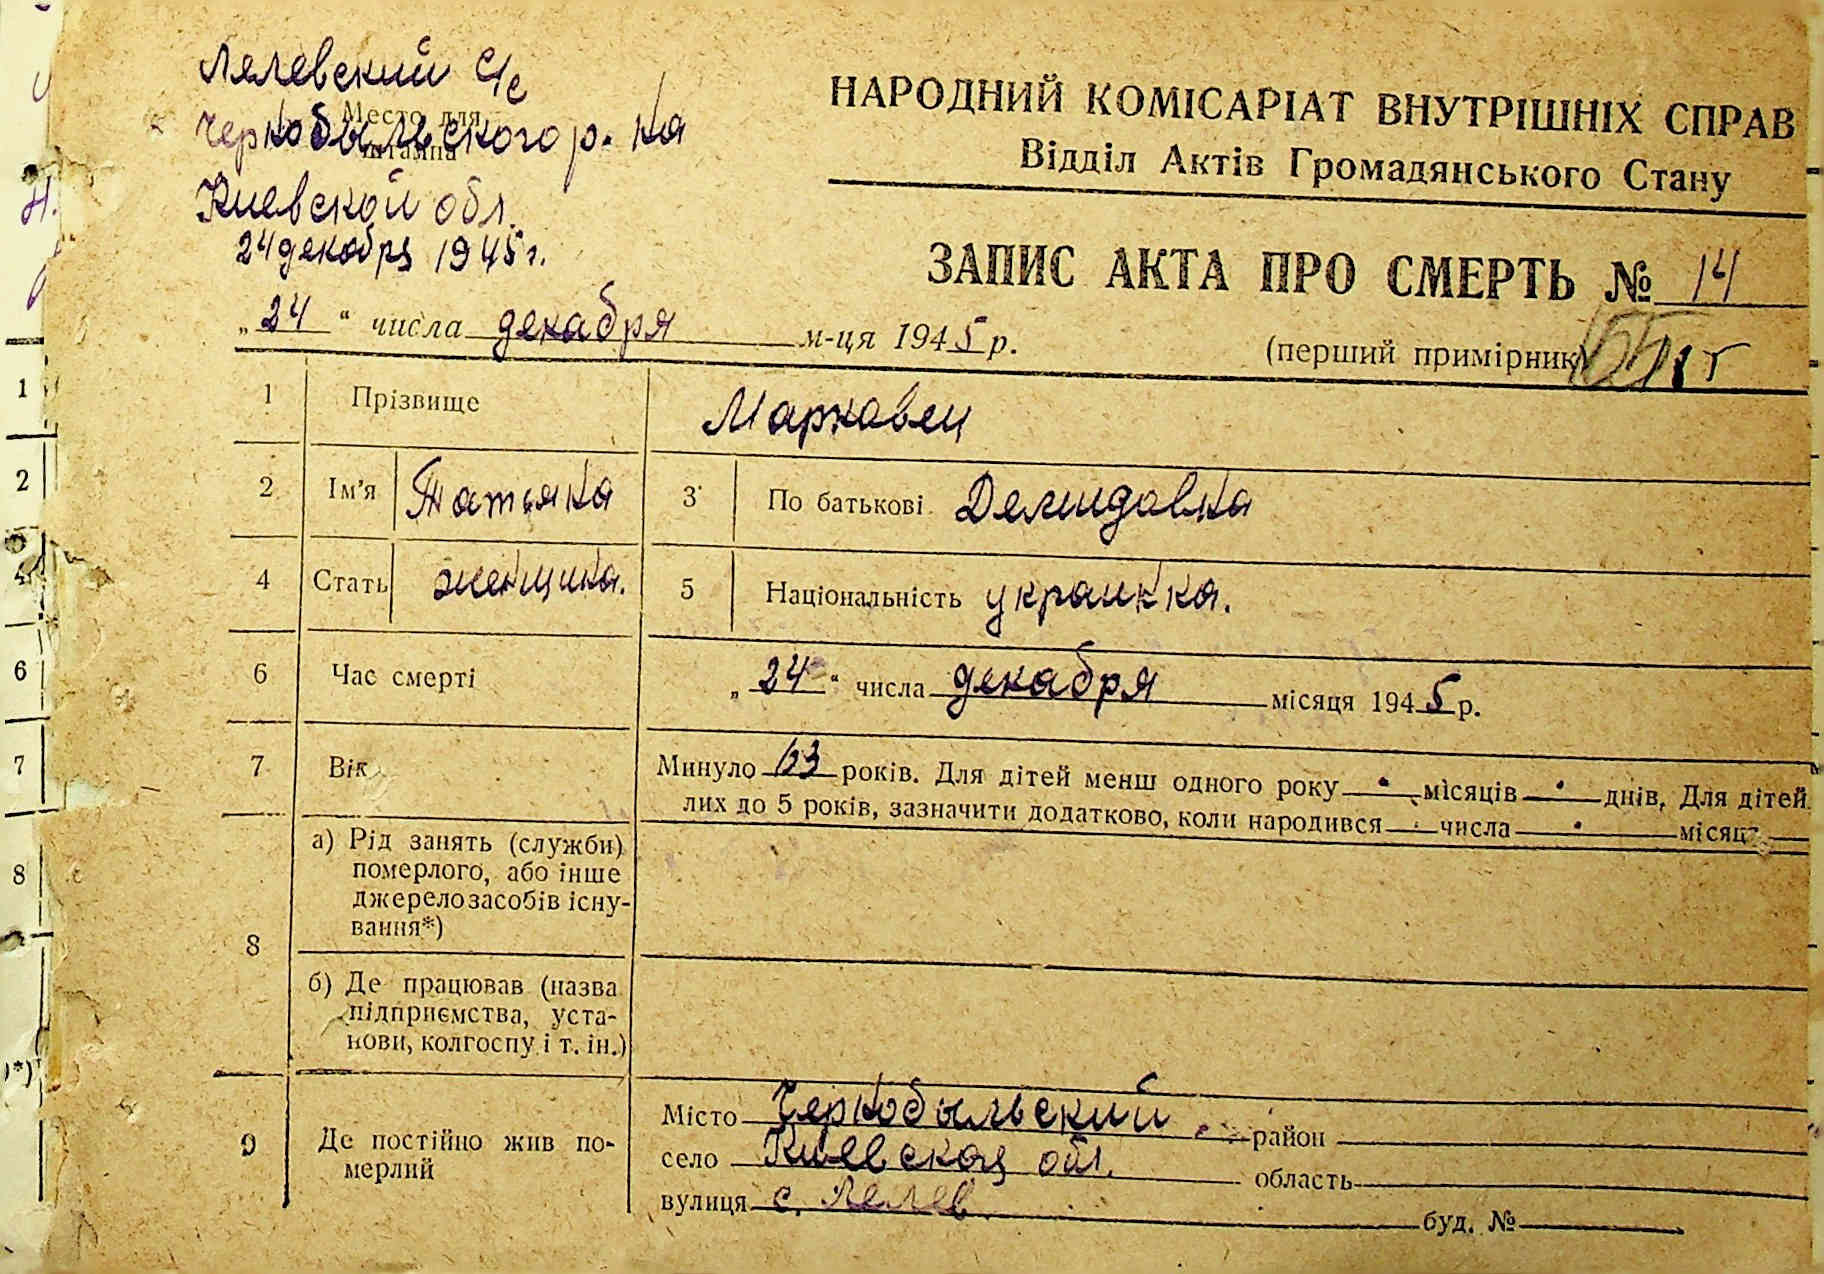 Лелевский с/с
Место для
Чернобыльского р-на
штампа
Киевской обл.
24 декабря 1945 г.
НАРОДНИЙ КОМІСАРІАТ ВНУТРІШНІХ СПРАВ
Відділ Актів Громадянського Стану
ЗАПИС АКТА ПРО СМЕРТЬ № 14
„24“ числа декабря м-ця 1945 р.
(перший примірник)
1 Прізвище Марковец
2 Ім'я Татьяна 3 По батькові Демидовна
4 Стать женщина. 5 Національність украинка.
6 Час смерті „24“ числа декабря місяця 1945 р.
7 Вік Минуло 63 років. Для дітей менш одного року місяців днів, Для дітей
лих до 5 років, зазначити додатково, коли народився числа місяц
8 а) Рід занять (служби)
померлого, або інше
джерело засобів існу-
вання*)
б) Де працював (назва
підприємства, уста-
нови, колгоспу і т. ін.)
9 Де постійно жив по-
мерлий
Місто Чернобыльский район
село Киевская обл. область
вулиця с. Лелев буд. №
1
2
4
6
7
8
*)